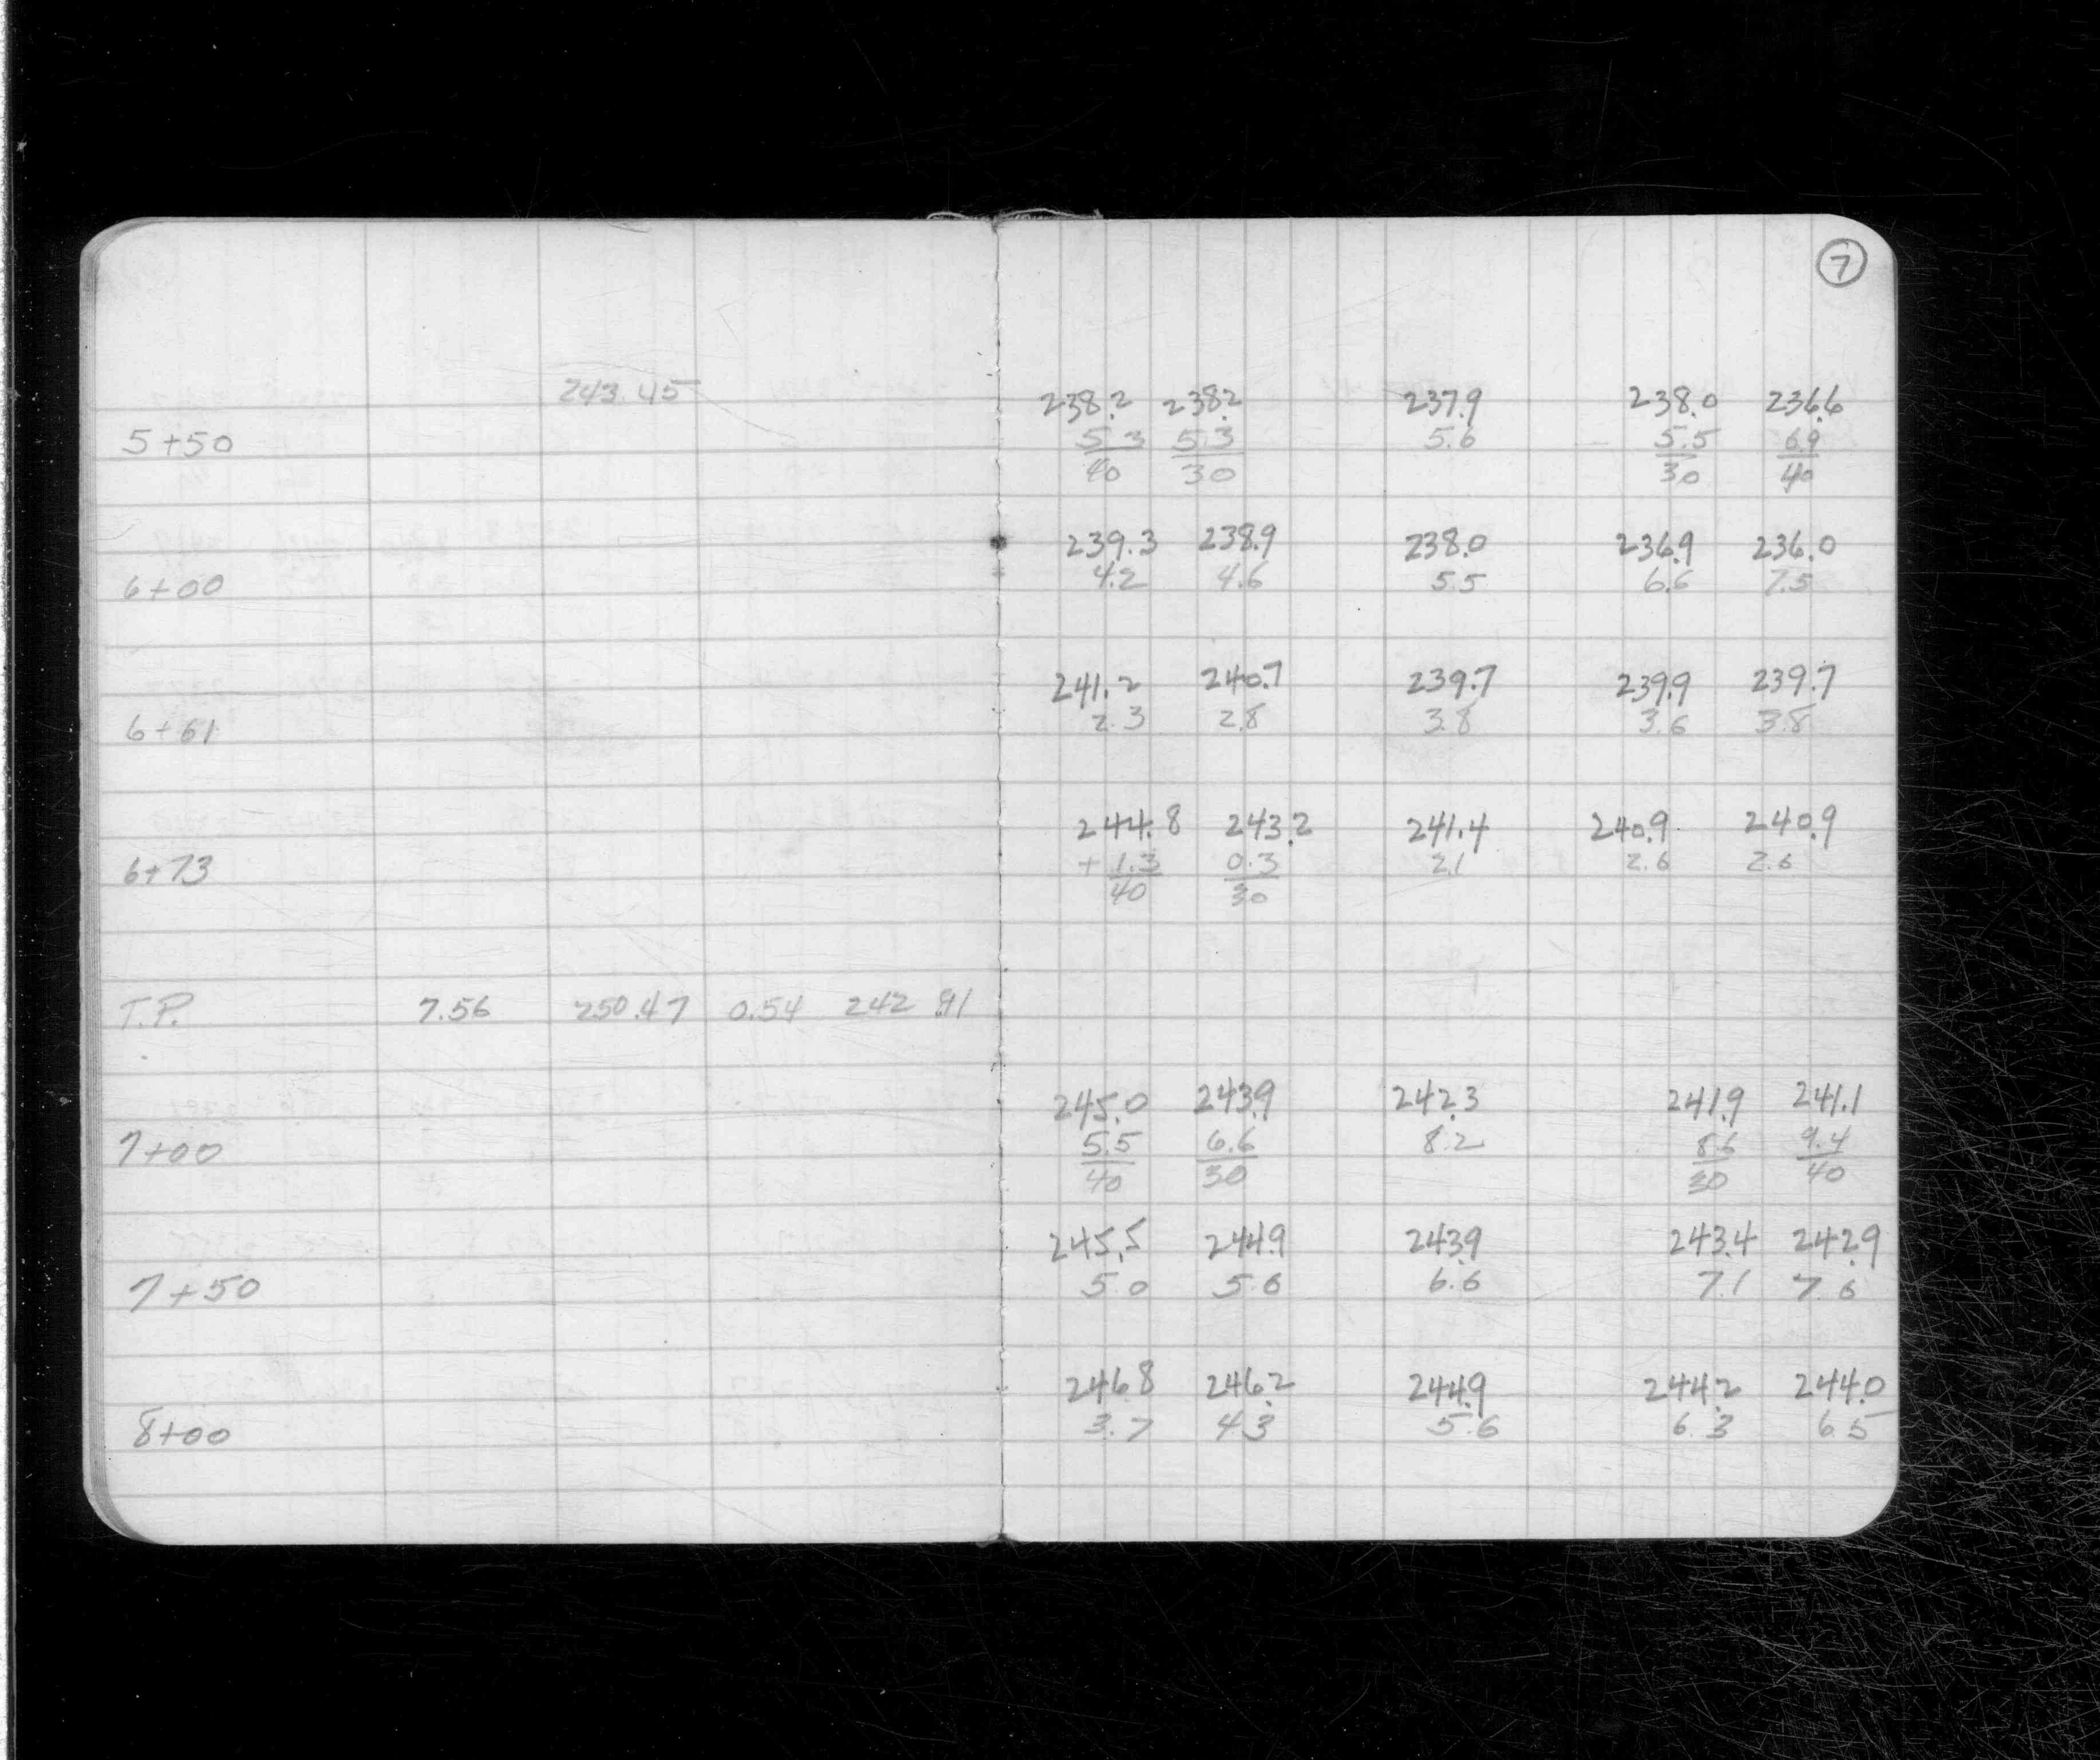 7
243.45
238.2 238.2 237.9 238.0 236.6
5+50 5.3 5.3 5.6 5.5 6.9
40 30 30 40
239.3 238.9 238.0 236.9 236.0
6+00 4.2 4.6 5.5 6.6 7.5
241.2 240.7 239.7 239.9 239.7
6+61 2.3 2.8 3.8 3.6 3.8
244.8 243.2 241.4 240.9 240.9
6+73 +1.3 0.3 2.1 2.6 2.6
40 30
T.P. 7.56 250.47 0.54 242.91
245.0 243.9 242.3 241.9 241.1
7+00 5.5 6.6 8.2 8.6 9.4
40 30 30 40
245.5 244.9 243.9 243.4 242.9
7+50 5.0 5.6 6.6 7.1 7.6
246.8 246.2 244.9 244.2 244.0
8+00 3.7 4.3 5.6 6.3 6.5